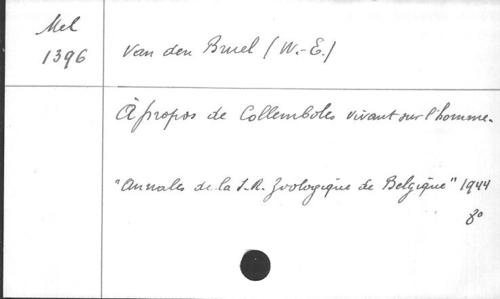 Mel
1396
Van den Bruel (W.-E.)
À propos de Collemboles vivant sur l'homme.
"Annales de la S.R. Zoologique de Belgique" 1944
8°